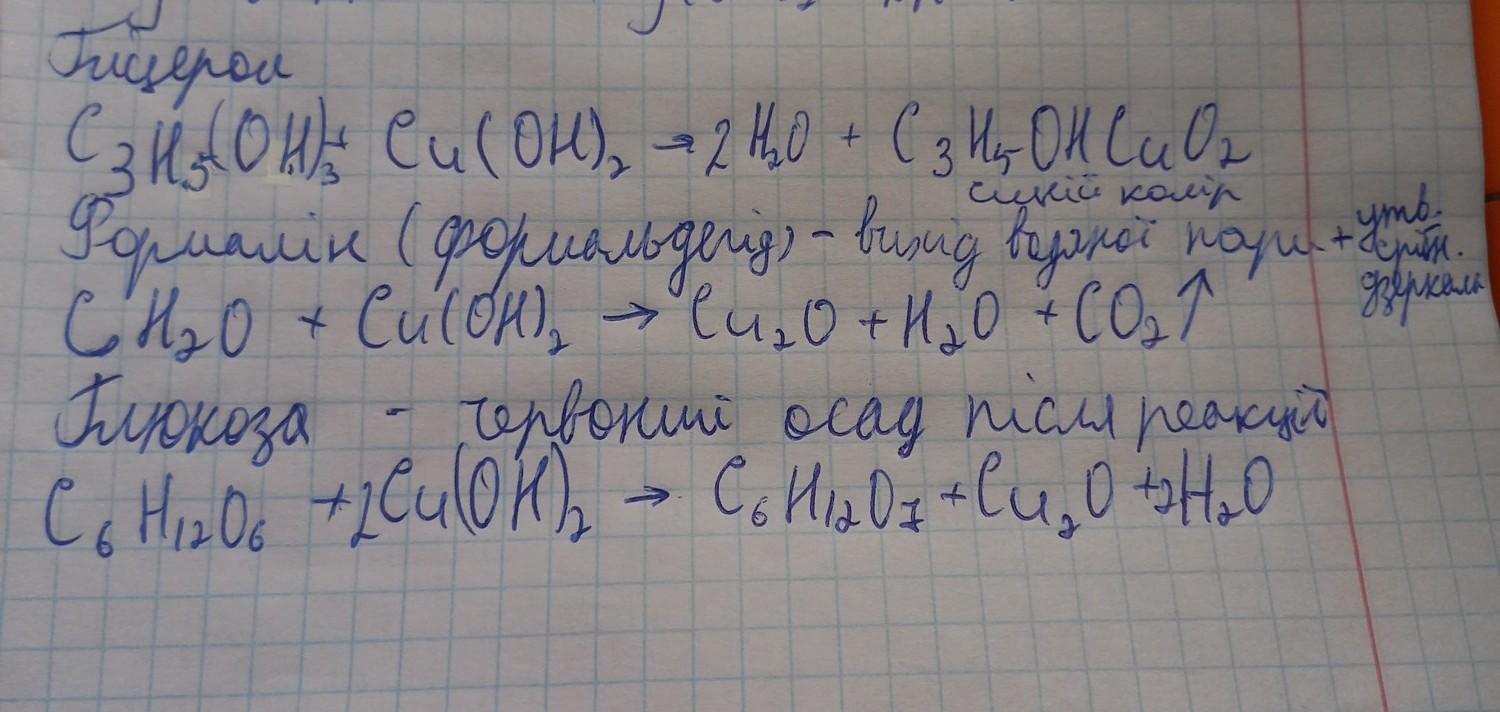 Гліцерол
C₃H₅(OH)₃ + Cu(OH)₂ → 2H₂O + C₃H₅OHCuO₂
синій колір
Формалін (формальдегід) - вихід водяної пари + утв. срібн. дзеркала
CH₂O + Cu(OH)₂ → Cu₂O + H₂O + CO₂↑
Глюкоза - червоний осад після реакції
C₆H₁₂O₆ + 2Cu(OH)₂ → C₆H₁₂O₇ + Cu₂O + 2H₂O